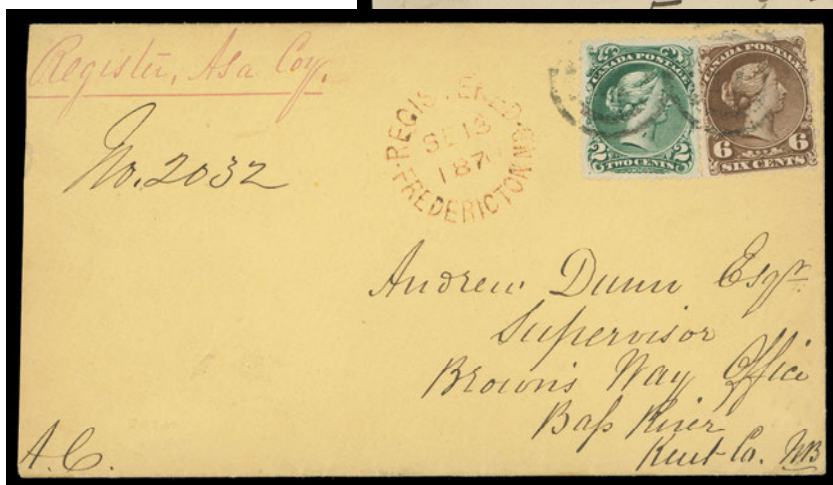 Register, Asa Coy.
No. 2032
REGISTERED
SE 13
187
FREDERICTON NB
CANADA POSTAGE
2 2
TWO CENTS
CANADA POSTAGE
6 6
SIX CENTS
Andrew Dunn Esqr.
Supervisor
Browns Way Office
Bass River
Kent Co. NB
A.C.